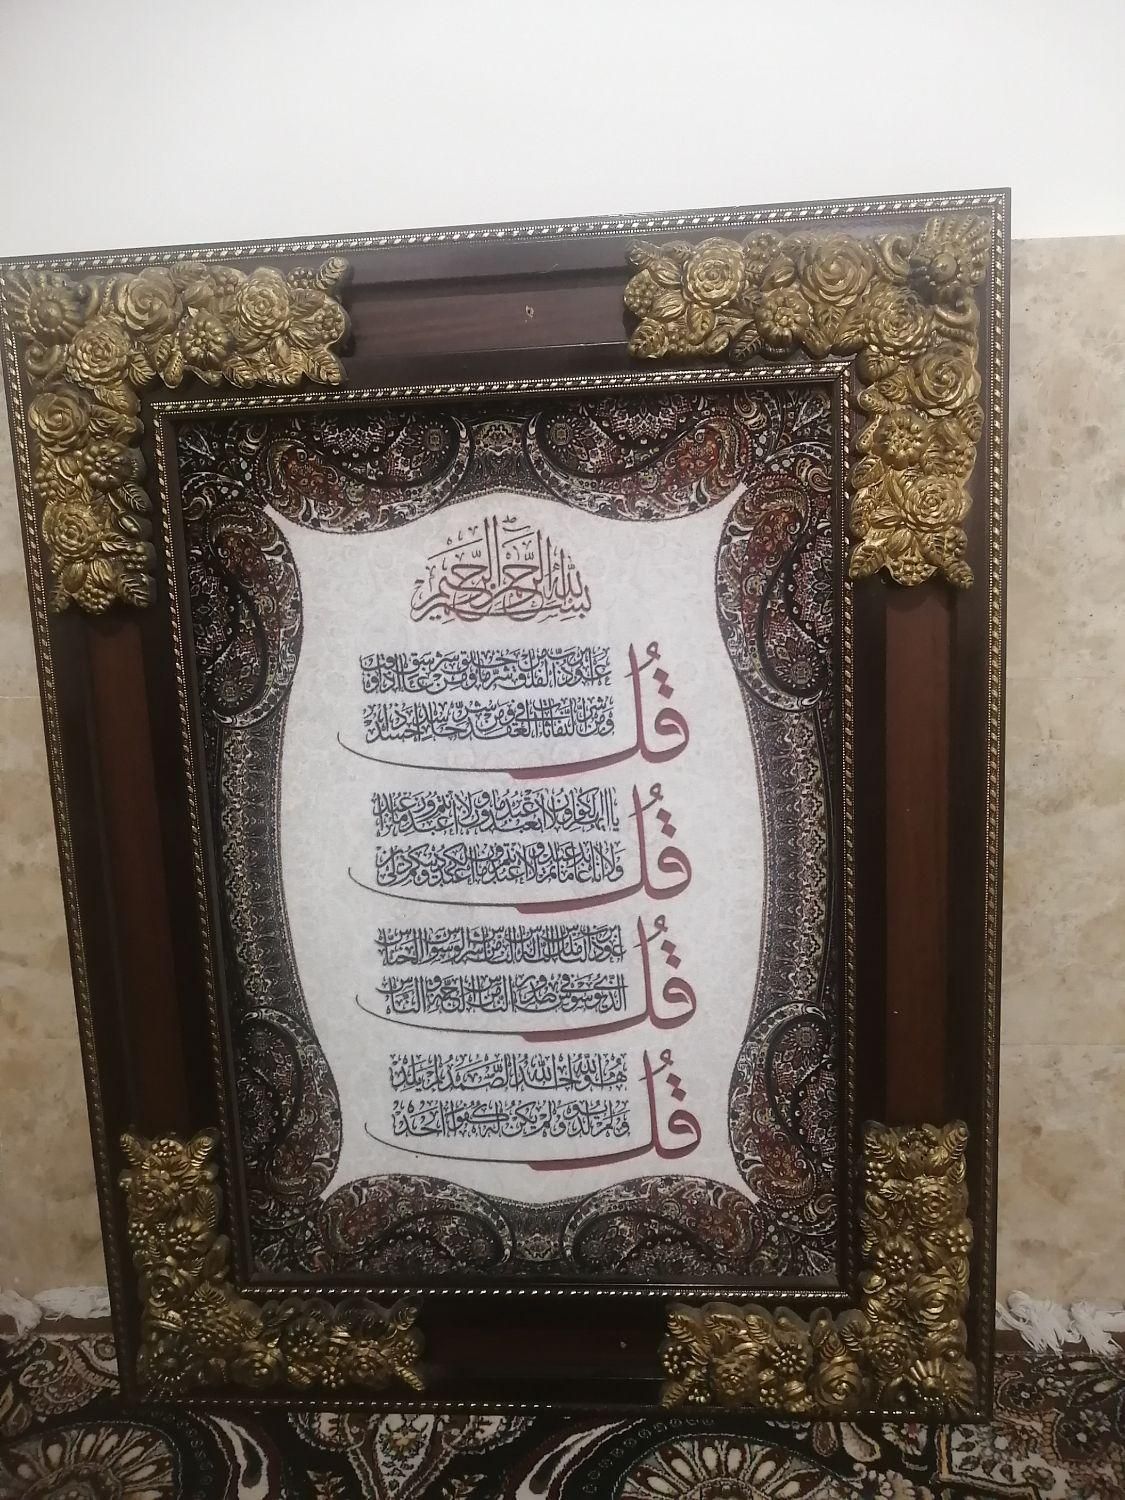 بسم الله الرحمن الرحیم
قل
اعوذ برب الفلق من شر ما خلق و من شر غاسق اذا وقب
و من شر النفاثات فی العقد و من شر حاسد اذا حسد
قل
یا ایها الکافرون لا اعبد ما تعبدون و لا انتم عابدون ما اعبد
و لا انا عابد ما عبدتم و لا انتم عابدون ما اعبد لکم دینکم ولی دین
قل
اعوذ برب الناس ملک الناس اله الناس من شر الوسواس الخناس
الذی یوسوس فی صدور الناس من الجنة و الناس
قل
هو الله احد الله الصمد لم یلد
و لم یولد و لم یکن له کفوا احد